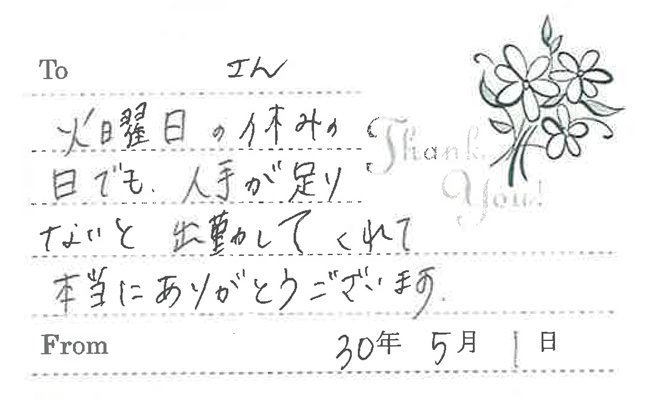 To エん
火曜日の休みの
日でも、人手が足り
ないと 出勤してくれて
本当にありがとうございます。
Thank
You!
From 30年 5月 1日